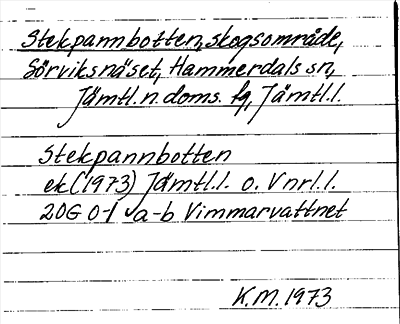 Stekpannbotten, skogsområde,
Sörviksnäset, Hammerdals sn,
Jämtl.n.doms. fg, Jämtl.l.
Stekpannbotten
ek (1973) Jämtl.l. o. Vnrl.l.
20G 0-1 a-b Vimmarvattnet
K.M. 1973